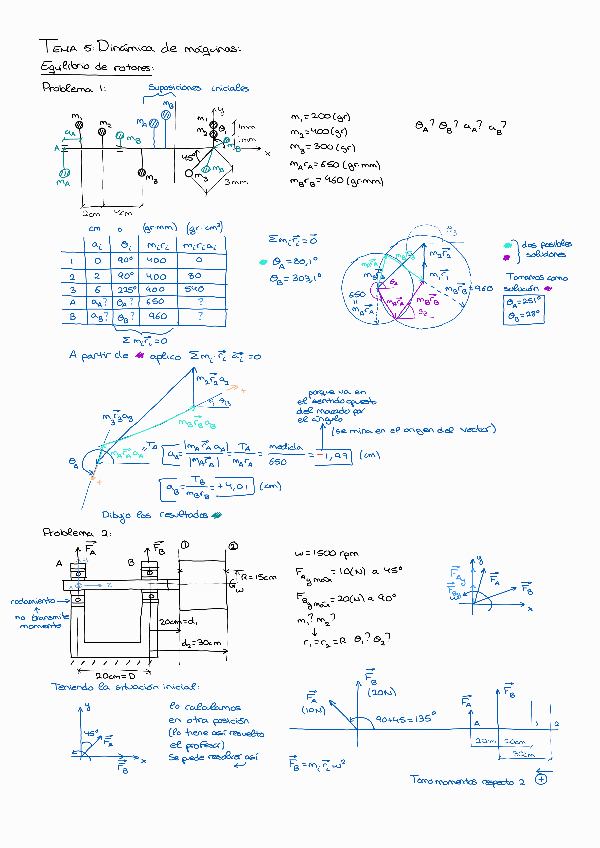 TEMA 5: Dinámica de máquinas:
Equilibrio de rotores:
Problema 1:
Suposiciones iniciales
m₁ = 200 (gr)
m₂ = 400 (gr)
m₃ = 300 (gr)
mₐrₐ = 650 (gr·mm)
m_B r_B = 960 (gr·mm)
θ_A? θ_B? a_A? a_B?
45°
3mm
2cm 4cm
cm o (gr·mm) (gr·cm²)
a_i θ_i m_i r_i m_i r_i a_i
1 0 90° 400 0
2 2 90° 400 80
3 6 225° 900 540
A a_A? θ_A? 650 ?
B a_B? θ_B? 960 ?
Σ m_i r_i = 0
Σ m_i r_i = 0
θ_A = 80,1°
θ_B = 303,1°
dos posibles
soluciones
Tomamos como
solución
θ_A = 251°
θ_B = 28°
A partir de aplico Σ m_i · r_i a_i = 0
porque va en
el sentido opuesto
del marcado por
el ángulo
(se mira en el origen del vector)
a_A = |m_A r_A a_A| / |m_A r_A| = T_A / m_A r_A = medida / 650 = -1,97 (cm)
a_B = T_B / m_B r_B = +4,01 (cm)
Dibujo los resultados
Problema 2:
F_A F_B
A B
R = 15cm
rodamiento
no transmite
momento
20cm = d₁
d₂ = 30cm
20cm = D
w = 1500 rpm
F_A y max = 10(N) a 45°
F_B y max = 20(N) a 90°
m₁? m₂?
r₁ = r₂ = R θ₁? θ₂?
Teniendo la situación inicial:
45°
lo calculamos
en otra posición
(lo tiene así resuelto
el profesor)
Se puede resolver así
F_A
(10N)
F_B
(20N)
90+45 = 135°
F_B = m_i r_i w²
20cm 20cm
30cm
Tomo momentos respecto 2 (+)